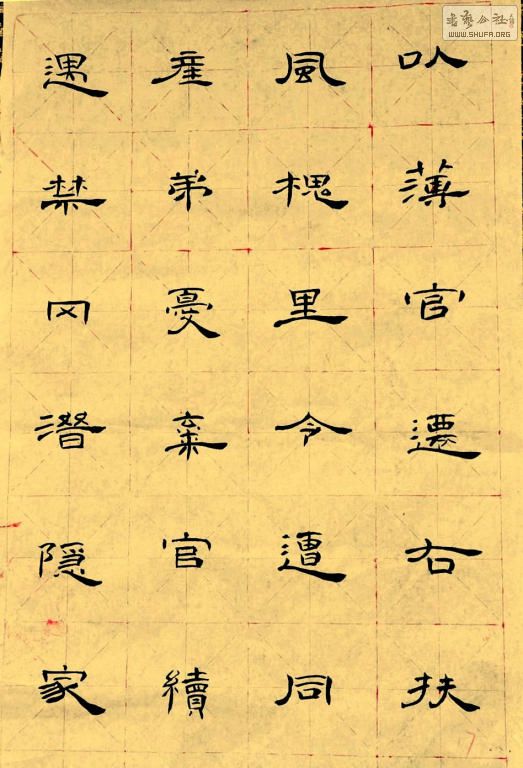 以薄官遷右扶
風槐里令遭同
產弟憂棄官續
遇禁网潛隱家
7
书艺公社
WWW.SHUFA.ORG